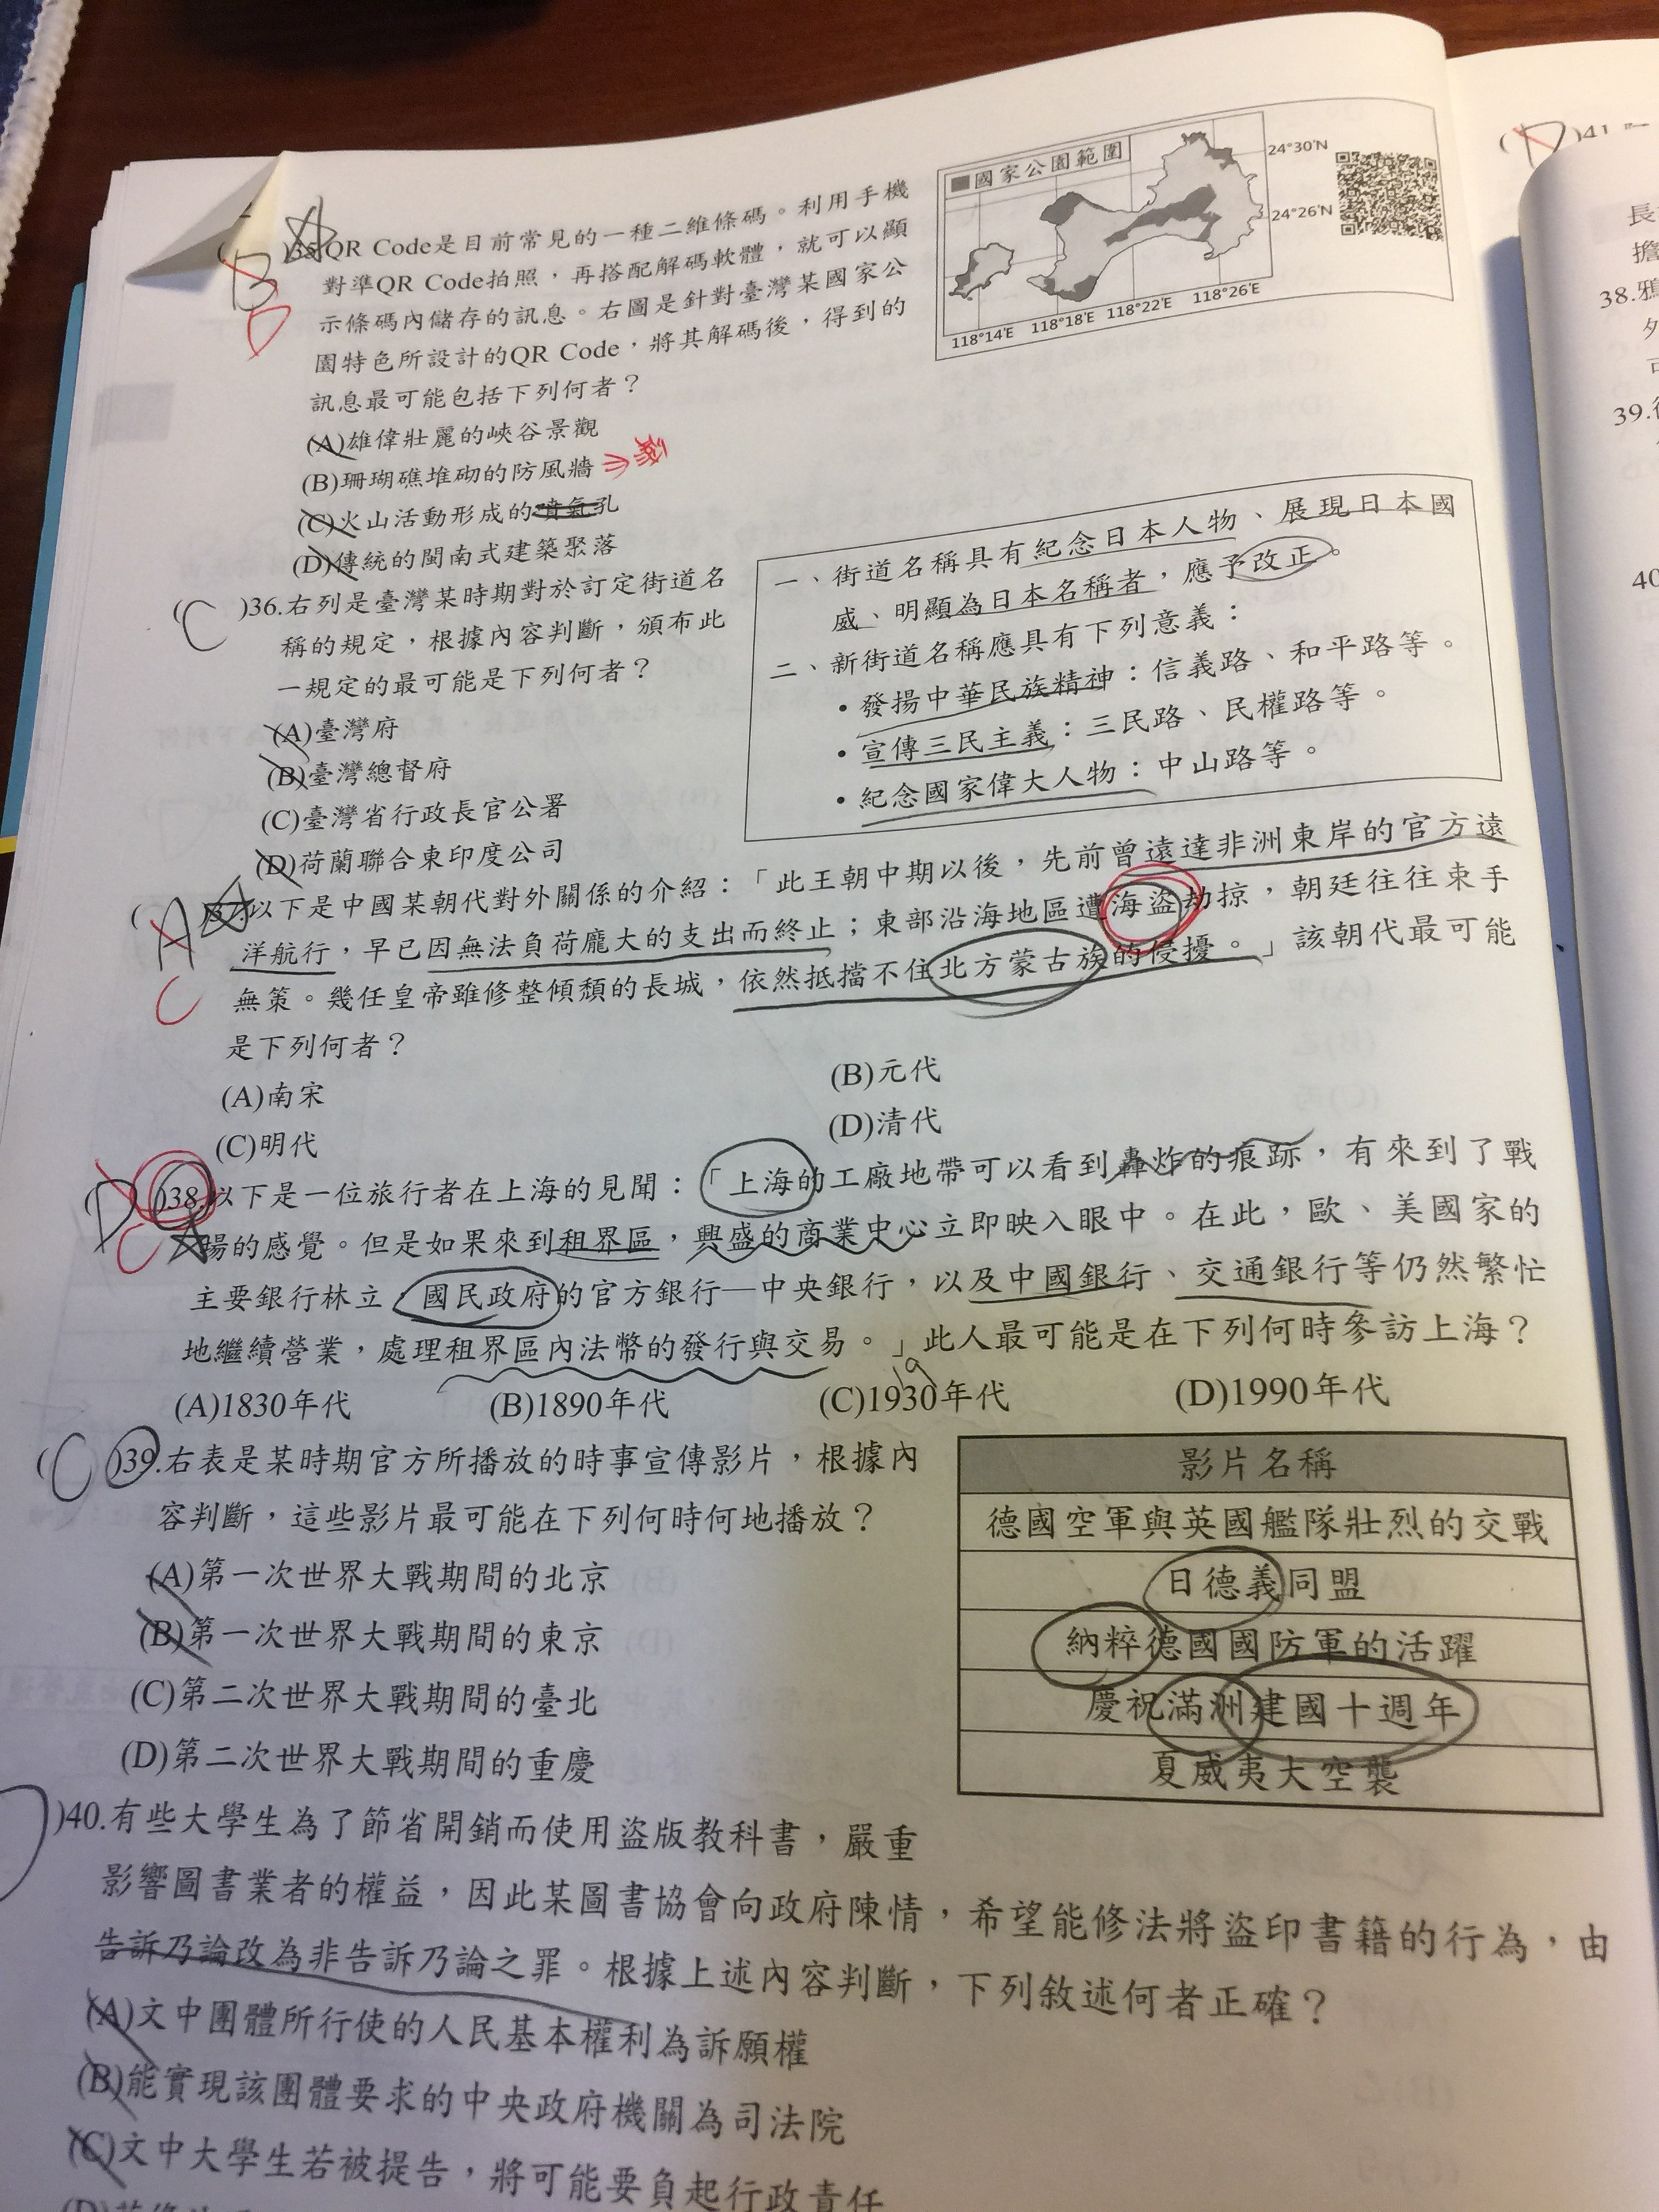 國家公園範圍
24°30'N
24°26'N
118°14'E 118°18'E 118°22'E 118°26'E
D )41
B D
)35.QR Code是目前常見的一種二維條碼。利用手機
對準QR Code拍照,再搭配解碼軟體,就可以顯
示條碼內儲存的訊息。右圖是針對臺灣某國家公
園特色所設計的QR Code,將其解碼後,得到的
訊息最可能包括下列何者?
(A)雄偉壯麗的峽谷景觀
(B)珊瑚礁堆砌的防風牆
(C)火山活動形成的噴氣孔
(D)傳統的閩南式建築聚落
(C )36.右列是臺灣某時期對於訂定街道名
稱的規定,根據內容判斷,頒布此
一規定的最可能是下列何者?
(A)臺灣府
(B)臺灣總督府
(C)臺灣省行政長官公署
(D)荷蘭聯合東印度公司
一、街道名稱具有紀念日本人物、展現日本國
威、明顯為日本名稱者,應予改正。
二、新街道名稱應具有下列意義:
•發揚中華民族精神:信義路、和平路等。
•宣傳三民主義:三民路、民權路等。
•紀念國家偉大人物:中山路等。
(A C )37.以下是中國某朝代對外關係的介紹:「此王朝中期以後,先前曾遠達非洲東岸的官方遠
洋航行,早已因無法負荷龐大的支出而終止;東部沿海地區遭海盜劫掠,朝廷往往束手
無策。幾任皇帝雖修整傾頹的長城,依然抵擋不住北方蒙古族的侵擾。」該朝代最可能
是下列何者?
(A)南宋
(B)元代
(C)明代
(D)清代
(D C )38.以下是一位旅行者在上海的見聞:「上海的工廠地帶可以看到轟炸的痕跡,有來到了戰
場的感覺。但是如果來到租界區,興盛的商業中心立即映入眼中。在此,歐、美國家的
主要銀行林立,國民政府的官方銀行—中央銀行,以及中國銀行、交通銀行等仍然繁忙
地繼續營業,處理租界區內法幣的發行與交易。」此人最可能是在下列何時參訪上海?
19
(A)1830年代 (B)1890年代 (C)1930年代 (D)1990年代
(C )39.右表是某時期官方所播放的時事宣傳影片,根據內
容判斷,這些影片最可能在下列何時何地播放?
(A)第一次世界大戰期間的北京
(B)第一次世界大戰期間的東京
(C)第二次世界大戰期間的臺北
(D)第二次世界大戰期間的重慶
影片名稱
德國空軍與英國艦隊壯烈的交戰
日德義同盟
納粹德國國防軍的活躍
慶祝滿洲建國十週年
夏威夷大空襲
)40.有些大學生為了節省開銷而使用盜版教科書,嚴重
影響圖書業者的權益,因此某圖書協會向政府陳情,希望能修法將盜印書籍的行為,由
告訴乃論改為非告訴乃論之罪。根據上述內容判斷,下列敘述何者正確?
(A)文中團體所行使的人民基本權利為訴願權
(B)能實現該團體要求的中央政府機關為司法院
(C)文中大學生若被提告,將可能要負起行政責任
長
擔
38.鴉
外
可
39.
40